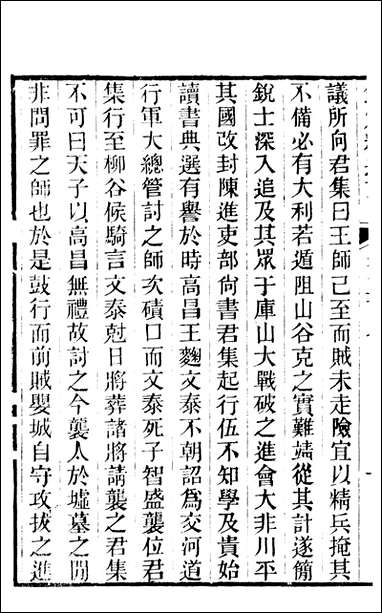 議所向君集曰王師已至而賊未走險宜以精兵掩其
不備必有大利若遁阻山谷克之實難靖從其計遂簡
銳士深入追及其眾于庫山大戰破之進會大非川平
其國改封陳進吏部尙書君集起行伍不知學及貴始
讀書典選有譽於時高昌王麴文泰不朝詔爲交河道
行軍大總管討之師次磧口而文泰死子智盛襲位君
集行至柳谷候騎言文泰尅日將葬諸將請襲之君集
不可曰天子以高昌無禮故討之今襲人於墟墓之閒
非問罪之師也於是鼓行而前賊嬰城自守攻拔之進